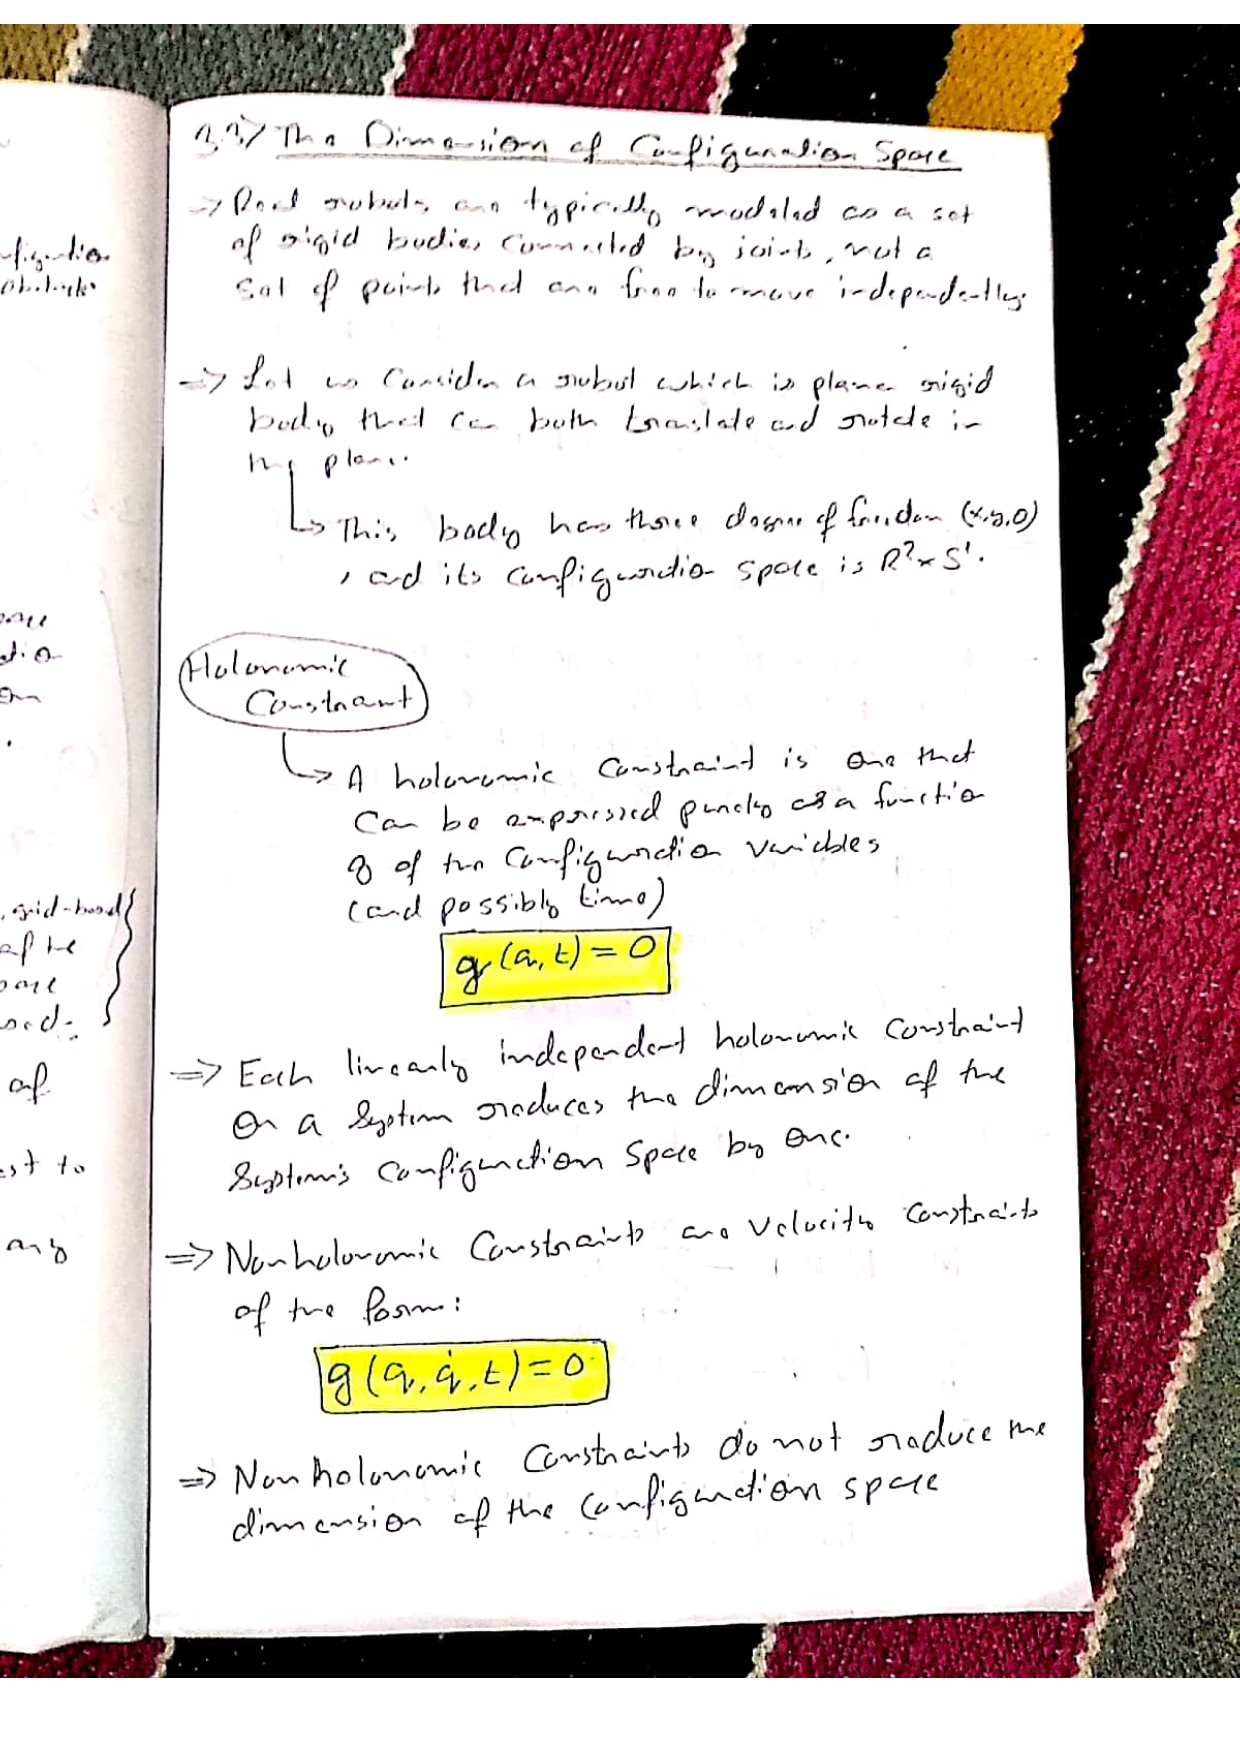 figuratio
obstacle
3.3> The Dimension of Configuration Space
-> Real robots are typically modeled as a set
of rigid bodies connected by joints, not a
set of points that are free to move independently.
=> Let us consider a robot which is planer rigid
body that can both translate and rotate in
the plane.
↳ This body has three degree of freedom (x,y,θ)
, and its configuration space is R²×S¹.
Holonomic
Constraint
↳ A holonomic constraint is one that
can be expressed purely as a function
g of the configuration variables
(and possibly time)
g(q, t) = 0
=> Each linearly independent holonomic constraint
on a system reduces the dimension of the
system's configuration space by one.
=> Nonholonomic Constraints are velocity constraints
of the form:
g(q, q̇, t) = 0
=> Nonholonomic Constraints do not reduce the
dimension of the configuration space
, grid-based
of the
of
st to
any